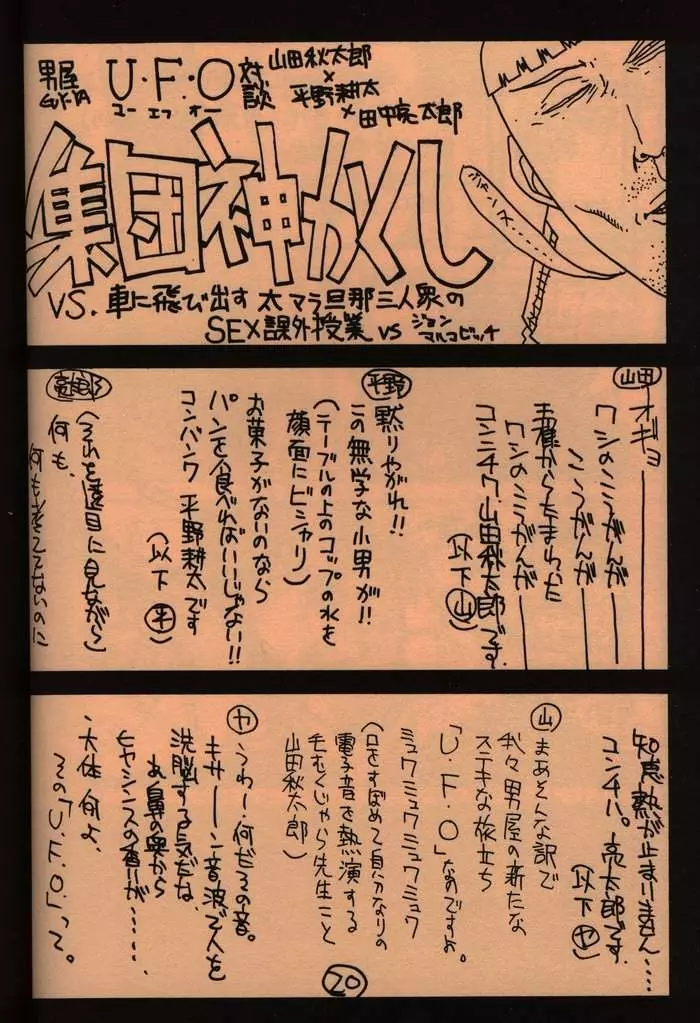 男屋
GUY-YA
U・F・O
ユー エフ オー
対談
山田秋太郎
×
平野耕太
×田中亮太郎
集団神かくし
VS. 車に飛び出す 太マラ旦那三人衆の
SEX課外授業 VS ジョン
マルコビッチ
ジャンス
山田
オギョ―――
ワシのこうがんが―――
こうがんが―――
王様からたまわった
ワシのこうがんが―――
コンニチワ、山田秋太郎です。
(以下 山)
平野
黙りやがれ!!
この無学な小男が!!
(テーブルの上のコップの水を
顔面にビシャリ)
お菓子がないのなら
パンを食べればいいじゃない!!
コンバンワ 平野耕太です
(以下 平)
亮太郎
(それを遠目に見ながら)
何も、
何も考えてないのに
知恵熱が止まりません……
コンチハ。亮太郎です。
(以下 ヤ)
山
まあそんな訳で
我々男屋の新たな
ステキな旅立ち
「U・F・O」なのですよ。
ミュワミュワミュワミュワ
(口をすぼめて自分なりの
電子音を熱演する
毛むくじゃら先生こと
山田秋太郎)
ヤ
うわー何だその音。
キサーン音波で人を
洗脳する気だな、
お鼻の奥から
ヒヤシンスの香りが……
、大体何よ、
その「U・F・O」って。
20